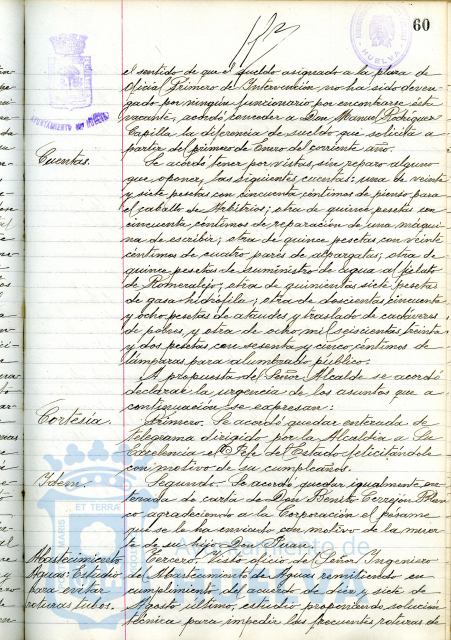 60
AYUNTAMIENTO DE HUELVA
HUELVA
el sentido de que el sueldo asignado a la plaza de
Oficial Primero de Intervención, no ha sido deven-
gado por ningún funcionario por encontrarse ésta
vacante, acordó conceder a Don Manuel Rodríguez
Capilla la diferencia de sueldo que solicita a
partir del primero de Enero del corriente año.
Cuentas.
Se acordó tener por vistas, sin reparo alguno
que oponer, las siguientes cuentas: una de veinte
y siete pesetas con cincuenta céntimos de pienso para
el caballo de Arbitrios; otra de quince pesetas con
cincuenta céntimos de reparación de una máqui-
na de escribir; otra de quince pesetas con veinte
céntimos de cuatro pares de alpargatas; otra de
quince pesetas de suministro de agua al fielato
de Romeralejo; otra de quinientas siete pesetas
de gasa hidrófila; otra de doscientas cincuenta
y ocho pesetas de ataudes y traslado de cadáveres
de pobres, y otra de ocho mil seiscientas treinta
y dos pesetas con sesenta y cinco céntimos de
lámparas para alumbrado público.
A propuesta del Señor Alcalde se acordó
declarar la urgencia de los asuntos que a
continuación se expresan:
Cortesía.
Primero. Se acordó quedar enterada de
telegrama dirigido por la Alcaldía a Su
Excelencia el Jefe de Estado felicitándole
con motivo de su cumpleaños.
Idem.
Segundo. Se acordó quedar igualmente en-
terada de carta de Don Benito Cerrejón Blan-
co agradeciendo a la Corporación el pésame
que se le ha enviado con motivo de la muer-
te de su hijo Don Juan.
Abastecimiento
Aguas: Estudio
para evitar
roturas tubos.
Tercero. Visto oficio del Señor Ingeniero
del Abastecimiento de Aguas remitiendo en
cumplimiento del acuerdo de diez y siete de
Agosto último, estudio proponiendo solución
técnica para impedir las frecuentes roturas de